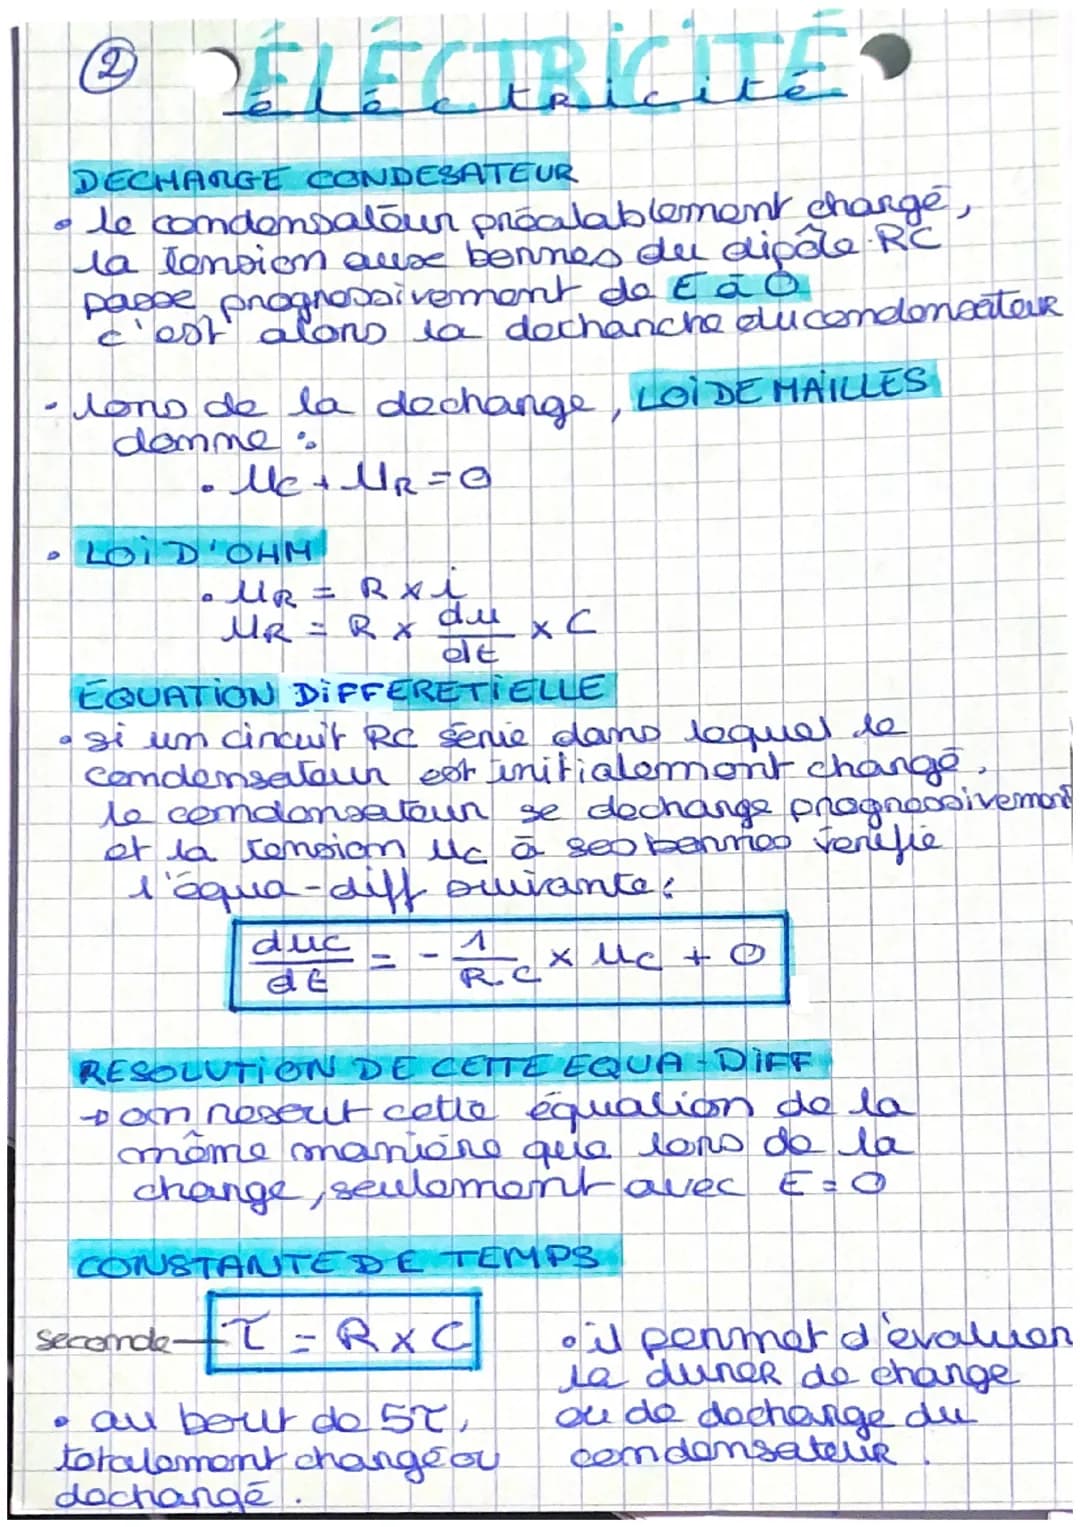 ②
ÉLÉCTRiCiTÉ
électricité
DECHARGE CONDESATEUR
• le condensateur préalablement chargé,
la tension aux bornes du dipôle RC
passe progressivement de E à 0
c'est alors la decharche du condensateur
• lors de la decharge, LOi DE MAiLLES
donne :
• Uc + UR = 0
• LOi D'OHM
• UR = R × i
UR = R × du/dt × C
EQUATiON DiFFERETiELLE
• si un circuit RC série dans lequel le
condensateur est initialement chargé,
le condensateur se decharge progressivement
et la tension Uc à ses bornes verifie
l'équa-diff suivante :
duc/dt = - 1/R.C × Uc + 0
RESOLUTiON DE CETTE EQUA-DiFF
→ on resout cette équation de la
même manière que lors de la
charge, seulement avec E = 0
CONSTANTE DE TEMPS
seconde τ = R × C
• il permet d'évaluer
la durer de charge
ou de decharge du
condensateur.
• au bout de 5τ,
totalement chargé ou
dechargé.